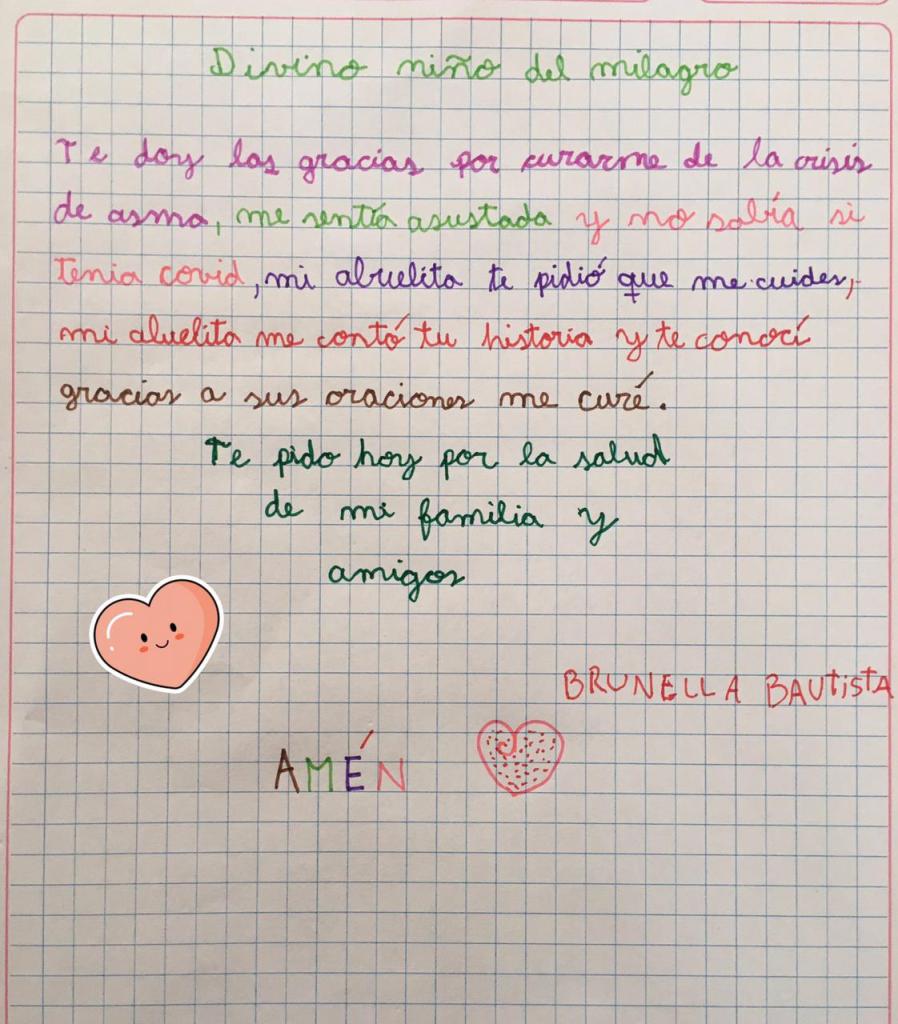 Divino niño del milagro
Te doy las gracias por curarme de la crisis
de asma, me sentía asustada y no sabía si
tenia covid, mi abuelita te pidió que me cuides,
mi abuelita me contó tu historia y te conocí
gracias a sus oraciones me curé.
Te pido hoy por la salud
de mi familia y
amigos
BRUNELLA BAUtistA
AMÉN